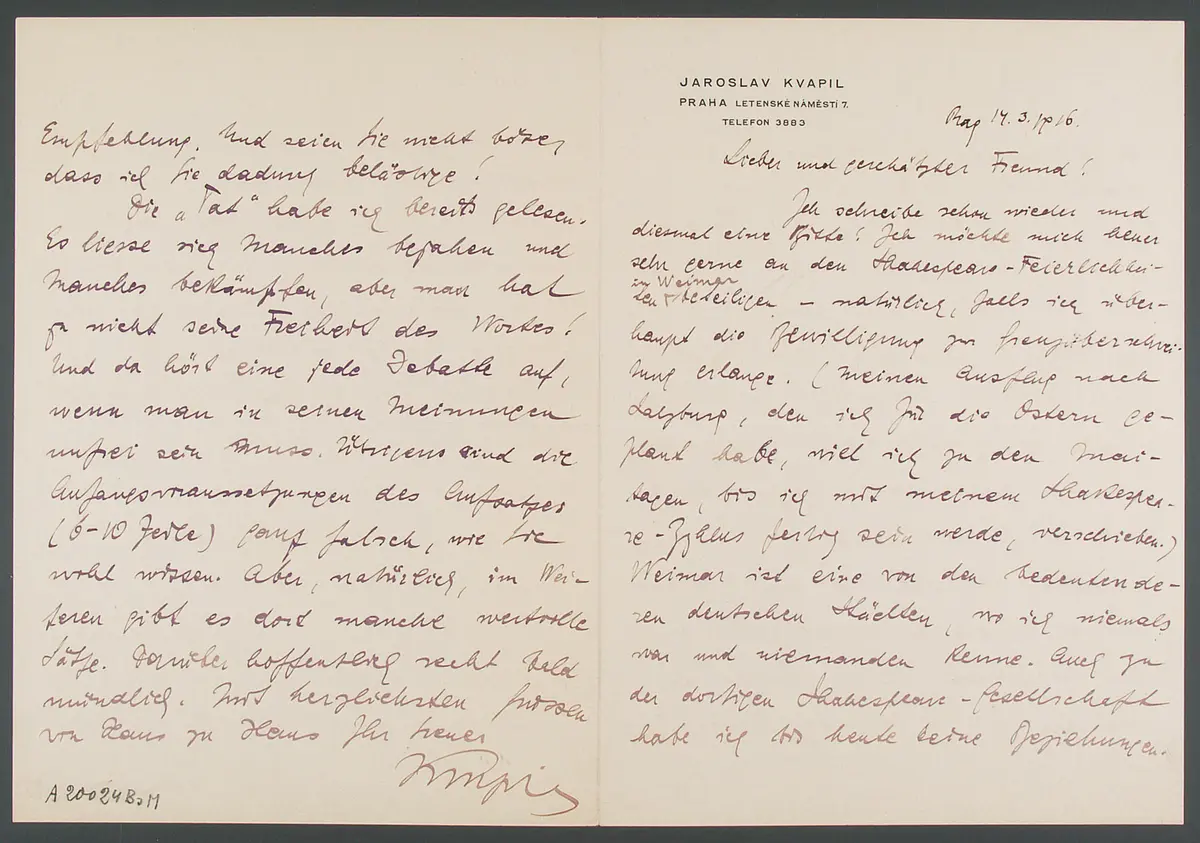 JAROSLAV KVAPIL
PRAHA LETENSKÉ NÁMĚSTÍ 7.
TELEFON 3883
Prag 14. 3. 1916.
Lieber und geschätzter Freund!
Ich schreibe schon wieder und
diesmal eine Bitte! Ich möchte mich heuer
sehr gerne an den Shakespeare-Feierlichkei-
in Weimar
ten beteiligen – natürlich, falls ich über-
haupt die Bewilligung zur Grenzüberschrei-
tung erlange. (Meinen Ausflug nach
Salzburg, den ich für die Ostern ge-
plant habe, will ich zu den Mai-
tagen, bis ich mit meinem Shakespea-
re-Zyklus fertig sein werde, verschieben.)
Weimar ist eine von den bedeutende-
ren deutschen Städten, wo ich niemals
war und niemanden kenne. Auch zu
der dortigen Shakespeare-Gesellschaft
habe ich bis heute keine Beziehungen.
Empfehlung. Und seien Sie nicht böse,
dass ich Sie dadurch belästige!
Die „Tat" habe ich bereits gelesen.
Es liesse sich Manches bejahen und
Manches bekämpfen, aber man hat
ja nicht seine Freiheit des Wortes!
Und da hört eine jede Debatte auf,
wenn man in seinen Meinungen
unfrei sein muss. Übrigens sind die
Anfangsvoraussetzungen des Aufsatzes
(6-10 Zeile) ganz falsch, wie Sie
wohl wissen. Aber, natürlich, im Wei-
teren gibt es dort manche wertvolle
Sätze. Darüber hoffentlich recht bald
mündlich. Mit herzlichsten Grüssen
von Haus zu Haus Ihr treuer
Kvapil
A 20024 BaM